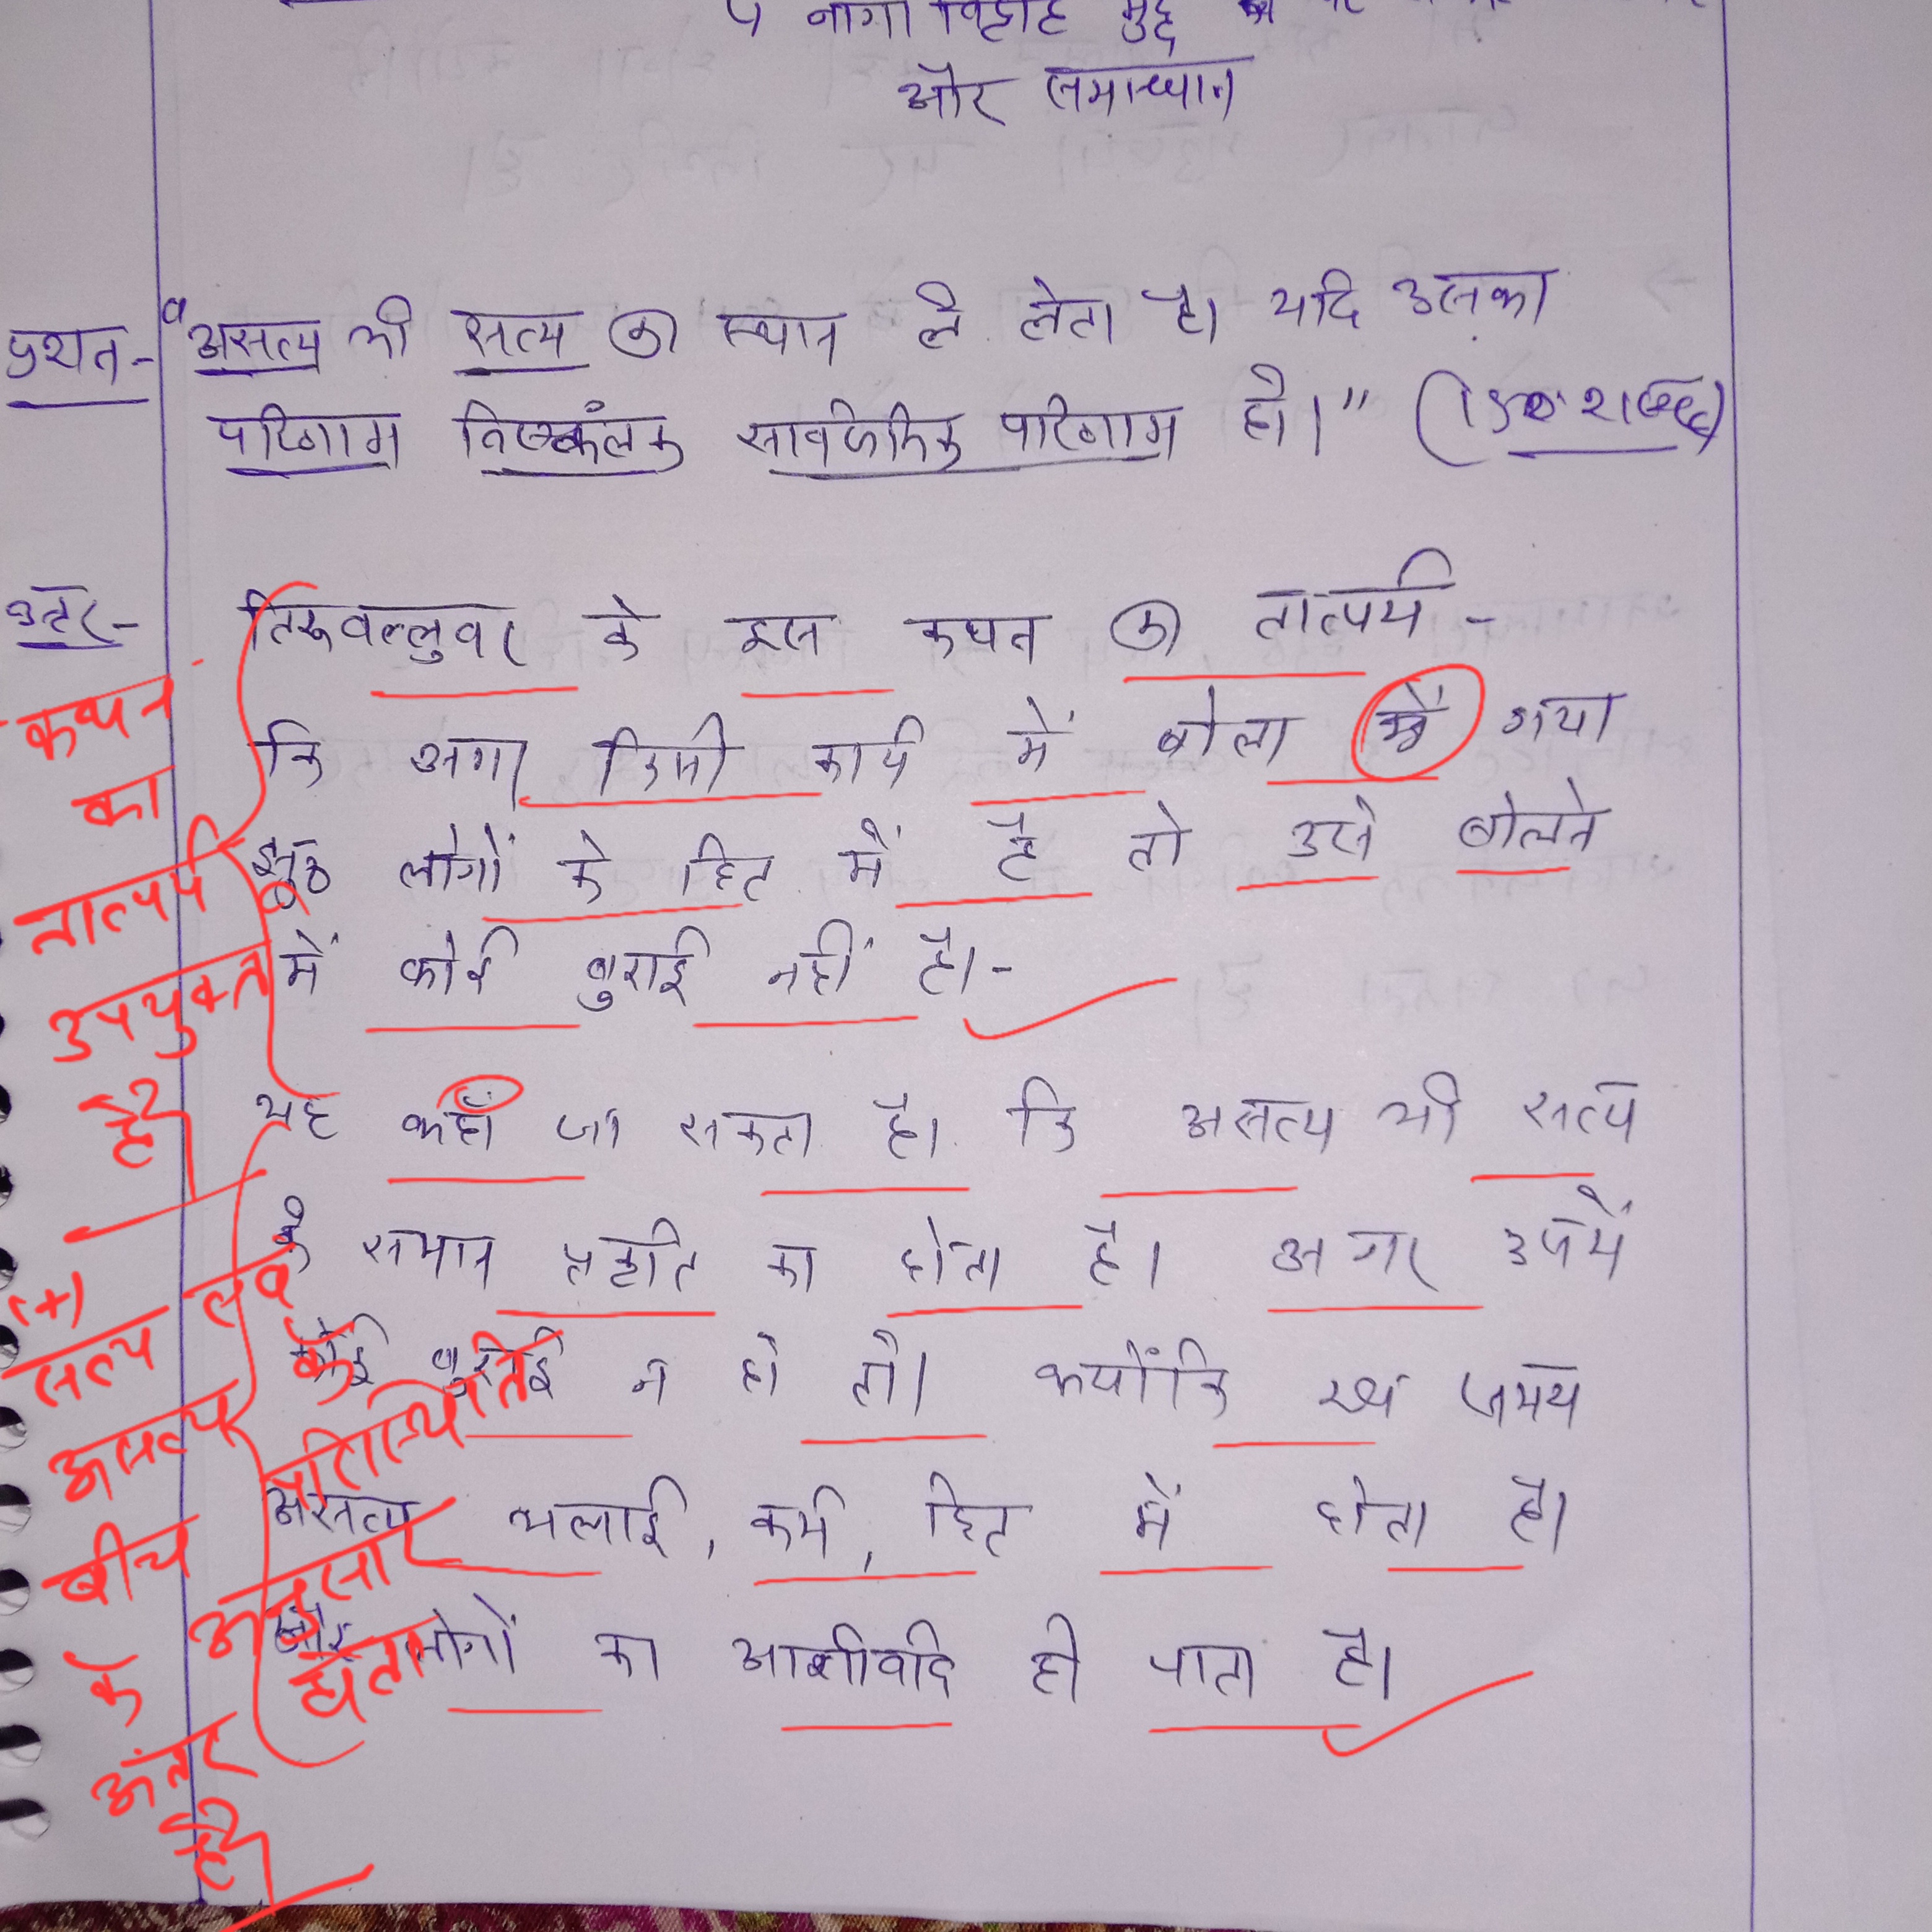 नागा विद्रोह मुद्दे
और समाधान
प्रश्न- "असत्य भी सत्य का स्थान ले लेता है। यदि उसका
परिणाम निष्कलंक सार्वजनिक परिणाम हो।" ( शब्द)
उत्तर- तिरूवल्लुवर के इस कथन का तात्पर्य -
कि अगर किसी कार्य में बोला में गया
झूठ लोगों के हित में है तो उसे बोलने
में कोई बुराई नहीं है।-
यह कहाँ जा सकता है। कि असत्य भी सत्य
के समान प्रकृति का होता है। अगर उसमें
कोई बुराई न हो तो। क्योंकि समय
असत्य भलाई, कर्म, हित में होता है।
और लोगों का आशीर्वाद ही पाता है।
कथन
का
तात्पर्य
उपयुक्त
है।
(+)
सत्य एवं
असत्य के
बीच परिस्थिति
के अनुसार
अंतर होता
है।